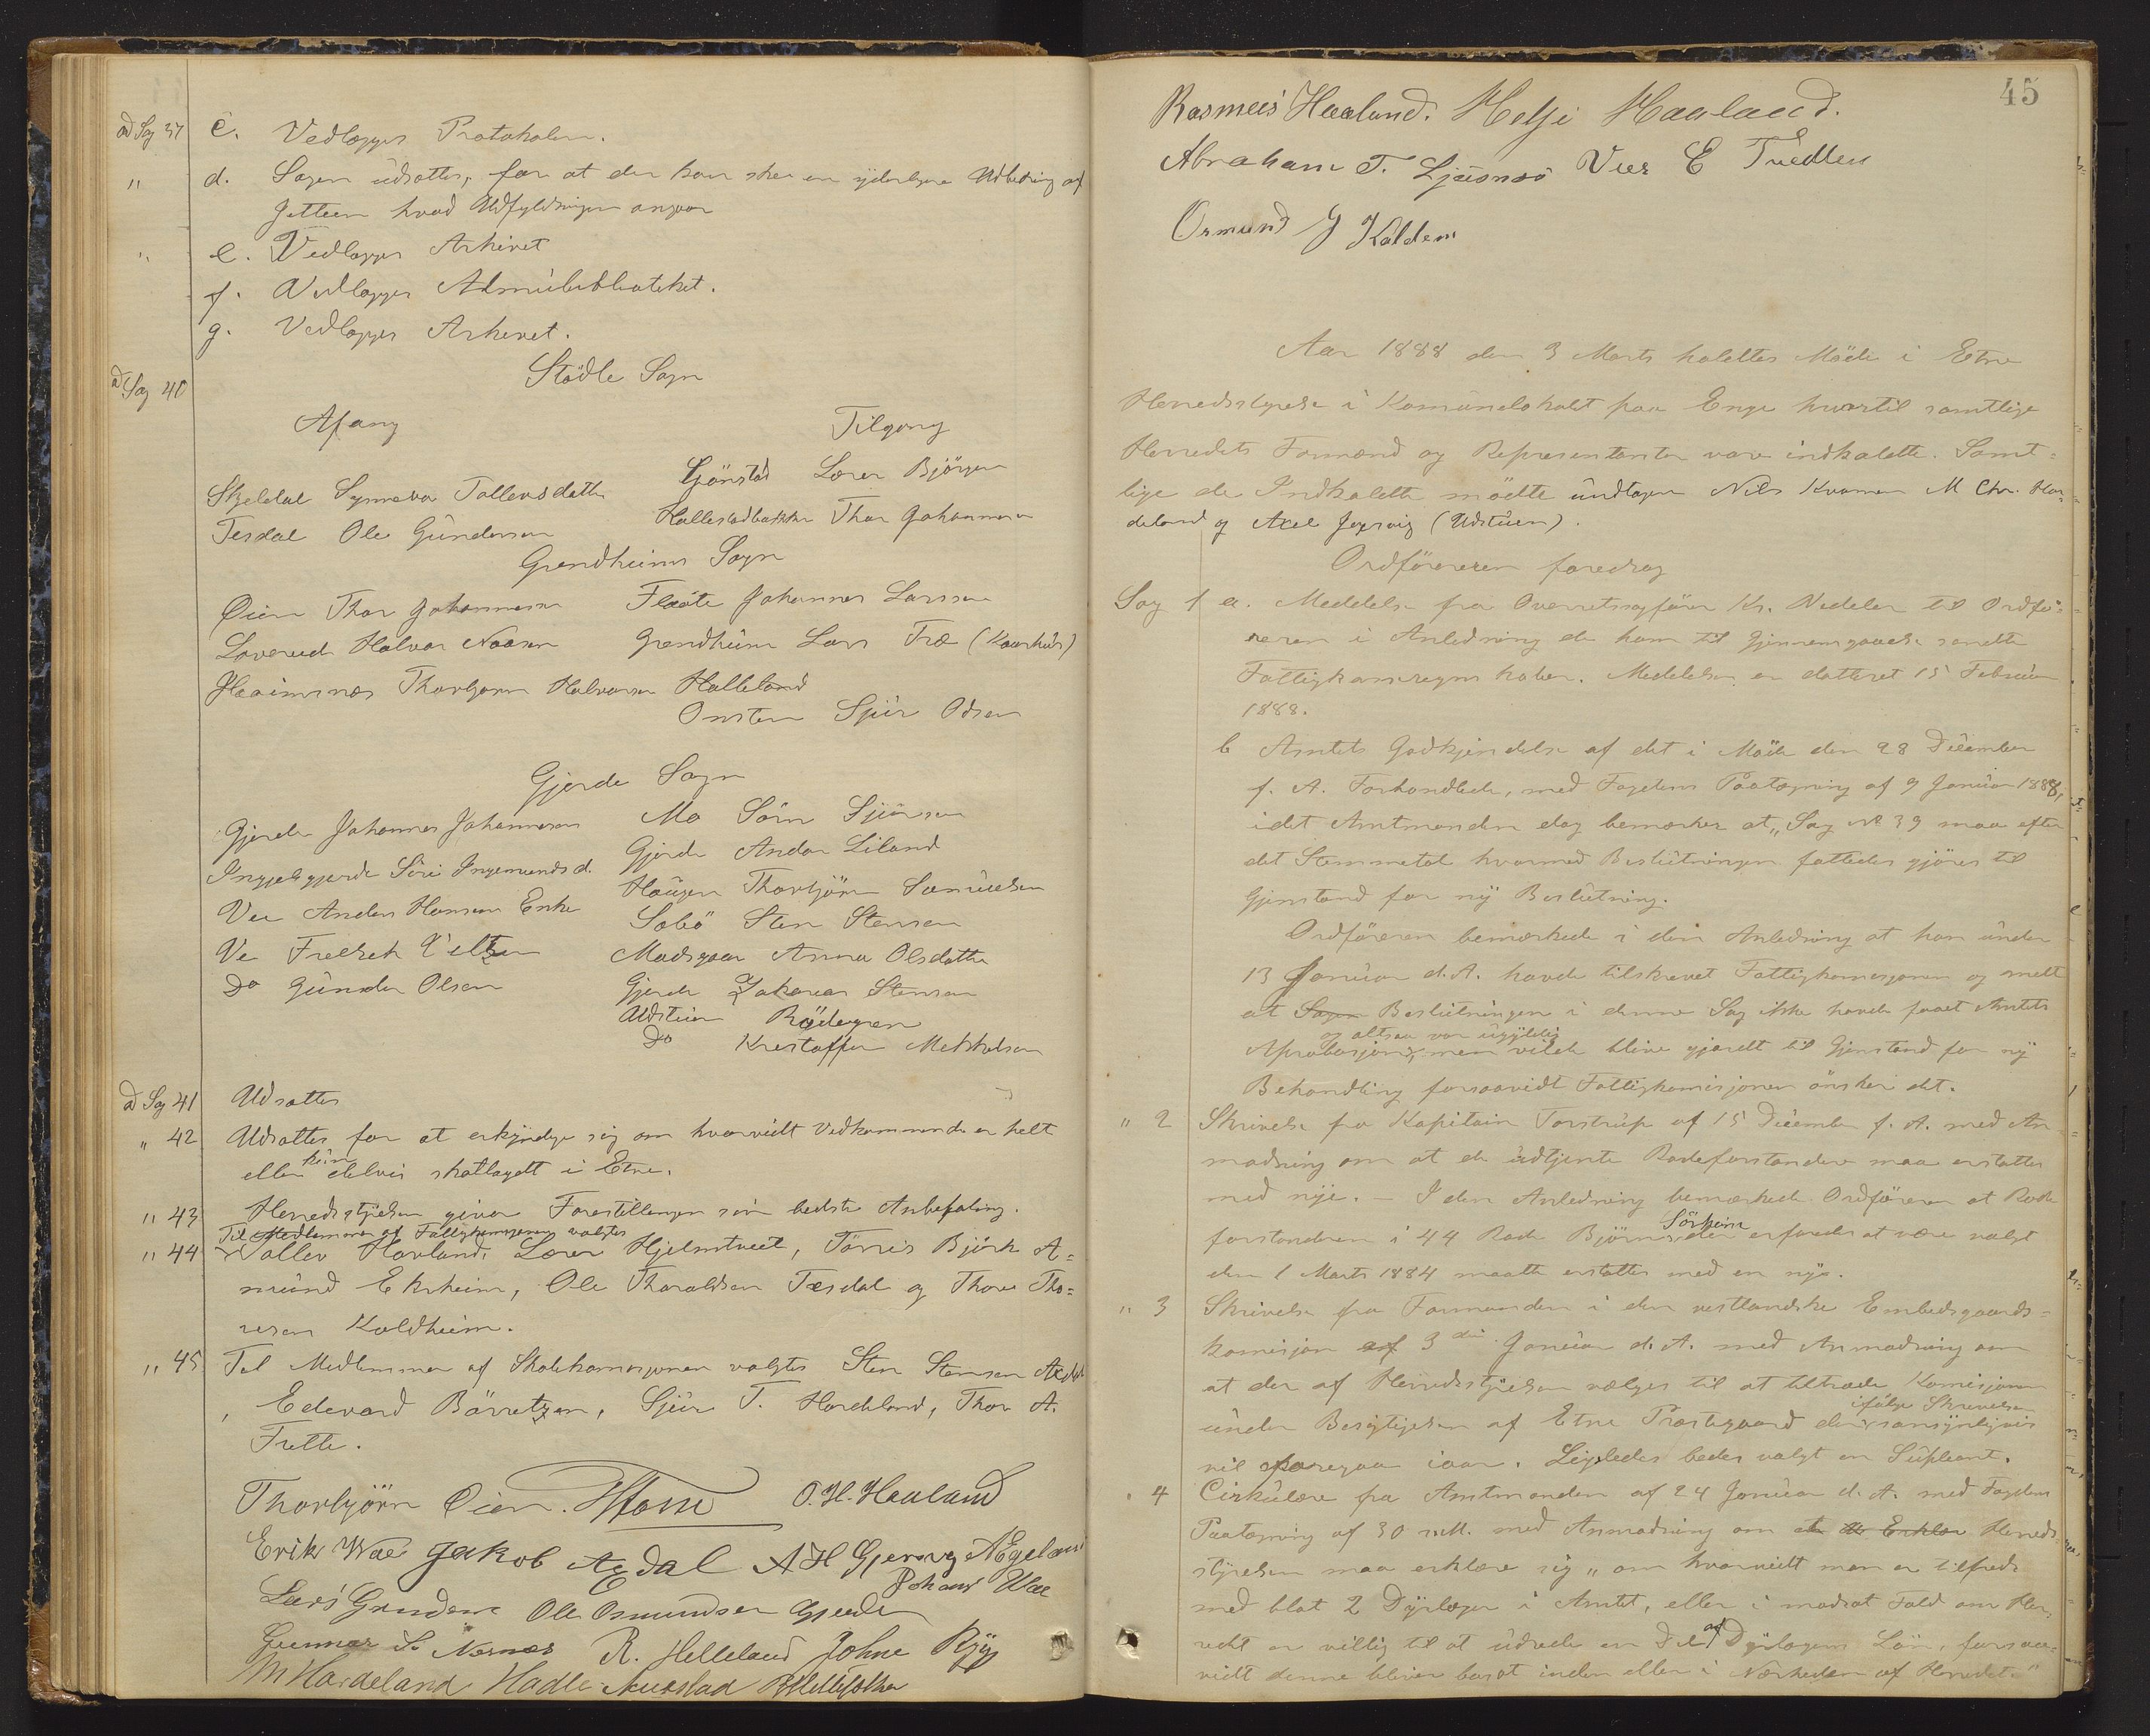 ad Sag 37 c. Vedlægges Protokolen.
" d. Sagen udsættes, for at der kan ske en yderligere Udbedring af
Jetteen hvad Udfyldningen angaar
" e. Vedlægges Arkivet
f. Vedlægges Almuebibliotheket.
g. Vedlægges Arkivet.
ad Sag 40 Stødle Sogn
Afgang Tilgang
Skjeldal Synneva Tollevsdatter
Tjønstad Lærer Bjørgen
Tesdal Ole Gunderson
Hallestadbakken Thor Johannesen
Grendheims Sogn
Øien Thor Johannessen Flaate Johannes Larssen
Halvor Naasen Grendheim Lars Træ (Kaarhus)
Thorbjørn Halvorsen Halleland
Onsten Sjur Odsen
Gjerde Sogn
Gjerde Johannes Johannessen Mo Sørn Sjursen
Ingjebgjerde Siri Ingemundsd. Gjerde Andor Liland
Vee Anders Hansen Enke Haugen Thorbjørn Samuelsen
Sæbø Sten Stensen
Ve Fredrek Madsgaar Anna Olsdatter
Do Gunder Olsen Gjerde Zakarias Stensen
Udstuen Rødegren
Do Krestoffer Mekkelsen
ad Sag 41 Udsættes
" 42 Udsættes for at erkyndige sig om hvorvidt Vedkommende er helt
eller kun delvis skatlagdt i Etne.
" 43 Herredsstyrelsen giver Forestillingen sin bedste Anbefaling.
Til Medlemmer af Fattigkomisjonen valgtes
" 44 Tollev Havland, Lærer Hjelmtveit, Tørris Bjørk A=
mund Ekrheim, Ole Tharaldsen Tesdal og Thore Tho=
resen Kaldheim.
" 45 Til Medlemmer af Skolekomisjonen valgtes Sten Stensen
, Edevard Børretzen, Sjur T. Hardeland, Thor A.
Frette.
Thorbjørn Øien. O. H. Haaland
Erik Wae Jakob Axdal A H Gjersvig A Egeland
Johans Wae
Lars Grindem Ole Osmundsen Gjerde
Gunnar S. Nernæs R. Helleland Johne Ryg
M Hardeland Hadle
45
Rasmus Haaland. Helje Haaland.
Abraham T. Ljusnæs E Tvedten
Osmund J Kaldem
Aar 1888 den 3 Marts holdtes Møde i Etne
Herredsstyrelse i Komunelokalet paa Enge hvortil samtlige
Herredets Formænd og Representanter vare indkaldte. Samt=
lige de Indkaldte mødte undtagen Nils Kvamen M Chr. Har=
deland og Axel Jersvig (Udstuen).
Ordføreren foredrog
Sag 1 a. Meddelelse fra Overretssagfører Kr. Nedeler til Ordfø=
reren i Anledning de ham til Gjennemgaaelse sendte
Fattigkasseregnskaber. Meddelelsen er datteret 15 Februar
1888.
b Amtets Godkjendelse af det i Møde den 28 December
f. A. Forhandlede, med Fogdens Paategning af 9 Januar 1888,
idet Amtmanden dog bemærker at „Sag No 39 maa efter
det Stemmetal hvormed Beslutningen fattedes gjøres til
Gjenstand for ny Beslutning.
Ordføreren bemærkede i den Anledning at han under
13 Januar d. A. havde tilskrevet Fattigkomisjonen og meldt
at Sagen Beslutningen i denne Sag ikke havde faaet Amtets
og altsaa var ugyldig
Aprobasjon, men vilde blive gjordt til Gjenstand for ny
Behandling forsaavidt Fattigkomisjonen ønsker det.
" 2 Skrivelse fra Kapitain Torstrup af 15 December f. A. med An
modning om at de udtjente Rodeforstandere maa erstattes
med nye. – I den Anledning bemærkede Ordføreren at Rode
forstanderen i 44 Rode Bjørn Sørheim erfaredes at være valgt
den 1 Marts 1884 maatte erstattes med en nye.
" 3 Skrivelse fra Formanden i den vestlandske Embedsgaards=
komisjon af 3die Januar d. A. med Anmodning om
at der af Herredsstyrelsen vælges til at tiltræde Komisjonen
under Besigtigelsen af Etne Præstegaard der ifølge Skrivelsen sansynligvis
vil foregaa iaar. Ligeledes bedes valgt en Supleant.
" 4 Cirkulære fra Amtmanden af 24 Januar d. A. med Fogdens
Paategning af 30 s. M. med Anmodning om at Herreds
styrelsen maa erklære sig „om hvorvidt man er tilfreds
med blot 2 Dyrlæger i Amtet, eller i modsat Fald om Her=
redet er villig til at udrede en Del af Dyrlægens Løn, forsaa=
vidt denne bliver bosat inden eller i Nærheden af Herredet."